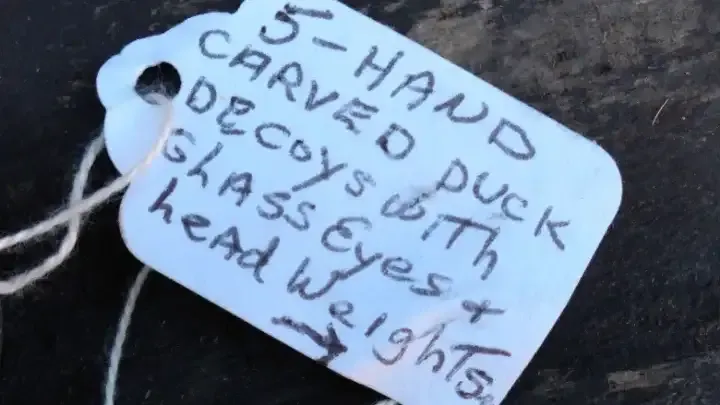 5-HAND
CARVED DUCK
DECOYS WITH
GLASS Eyes +
heAd WeighTs.
→